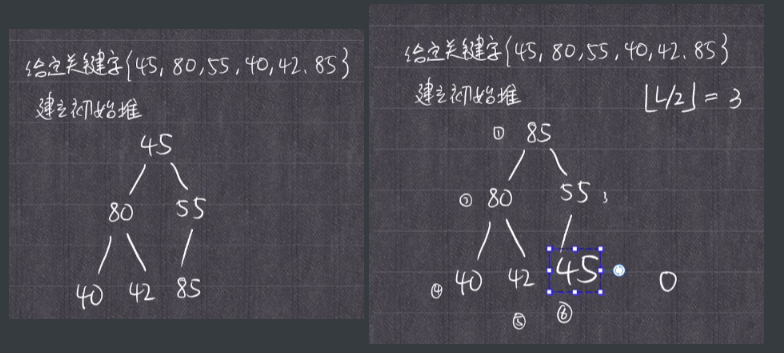 给定关键字{45, 80, 55, 40, 42, 85}
建立初始堆
45
80 55
40 42 85
给定关键字{45, 80, 55, 40, 42, 85}
建立初始堆 ⌊L/2⌋ = 3
① 85
② 80 55 3
④ 40 42 45 0
⑤ ⑥